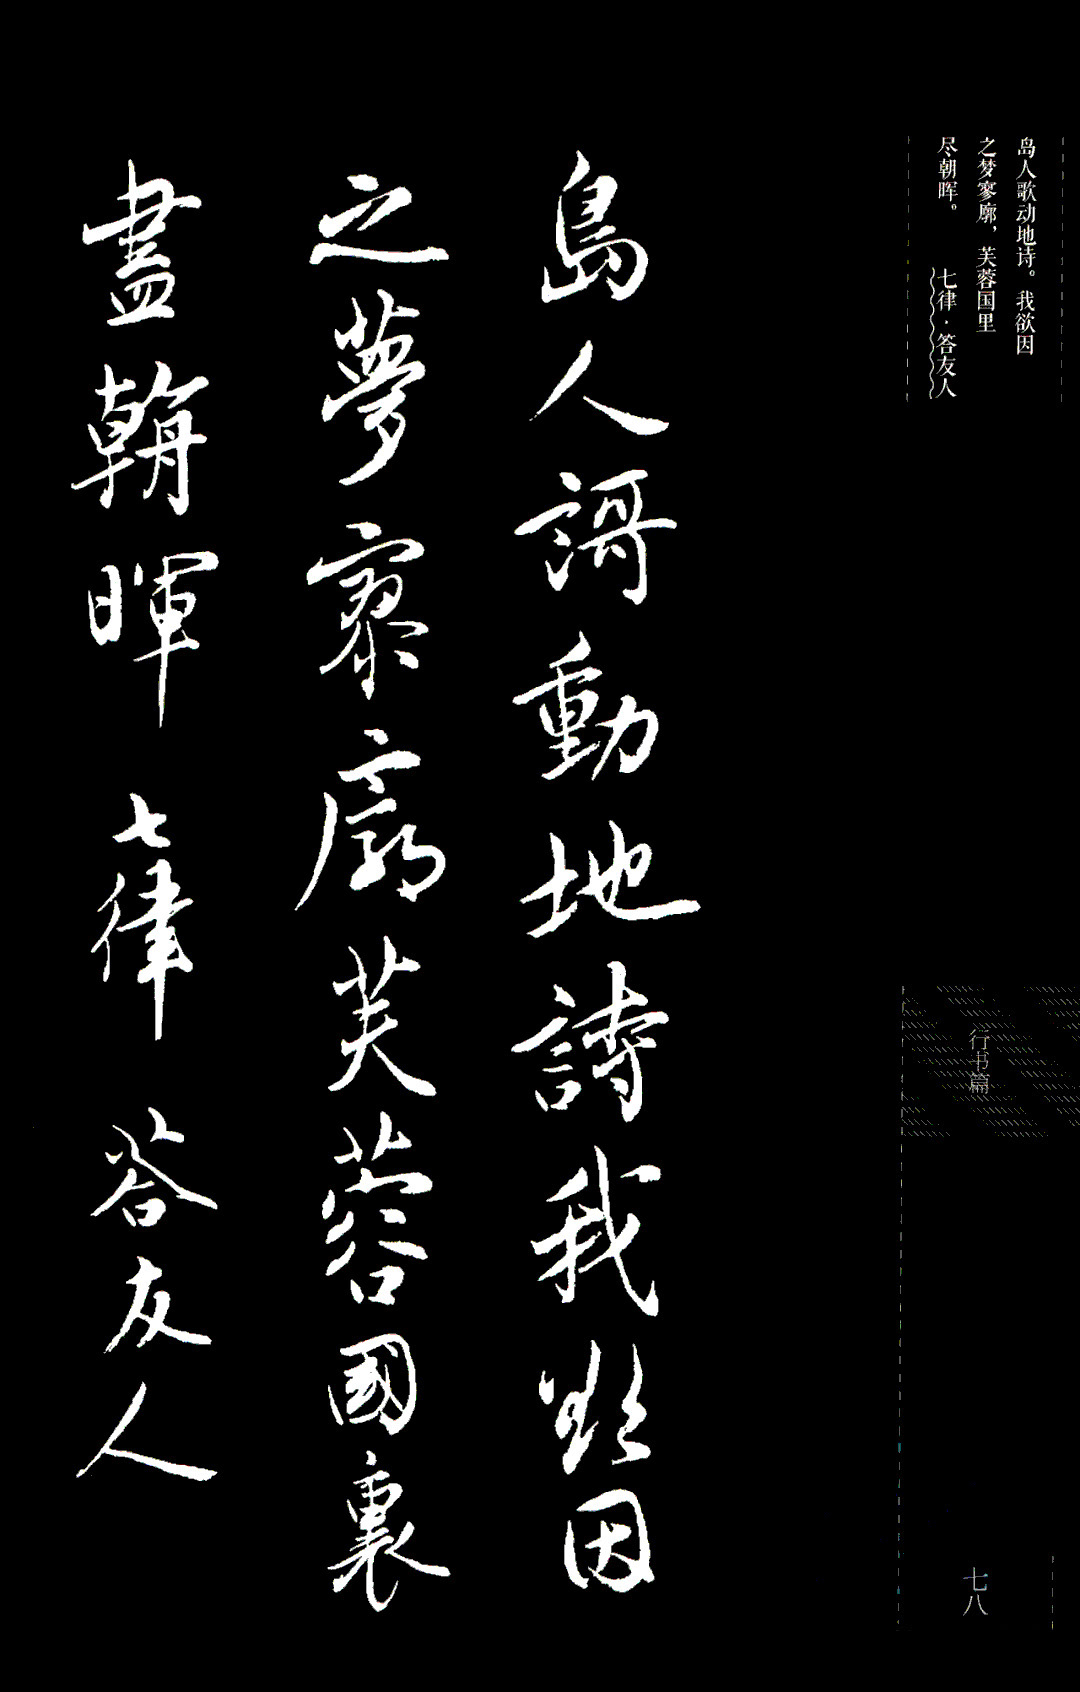 岛人歌动地诗。我欲因
之梦寥廓，芙蓉国里
尽朝晖。 七律·答友人
島人謌動地詩我欲因
之夢寥廓芙蓉國裏
盡朝暉 七律 答友人
行书篇
七八